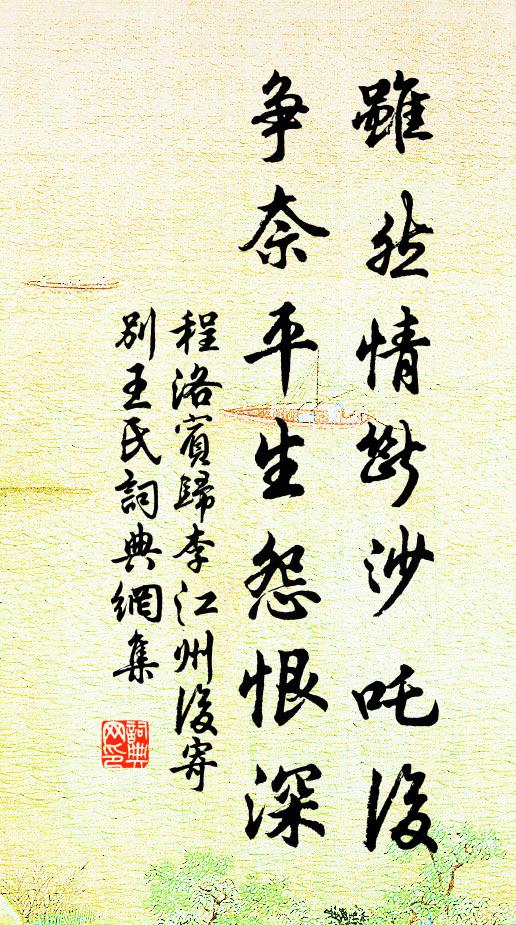 雖然情斷沙吒後
争奈平生怨恨深
程洛賓歸李江州後寄
別王氏詞典網集
詞典網印